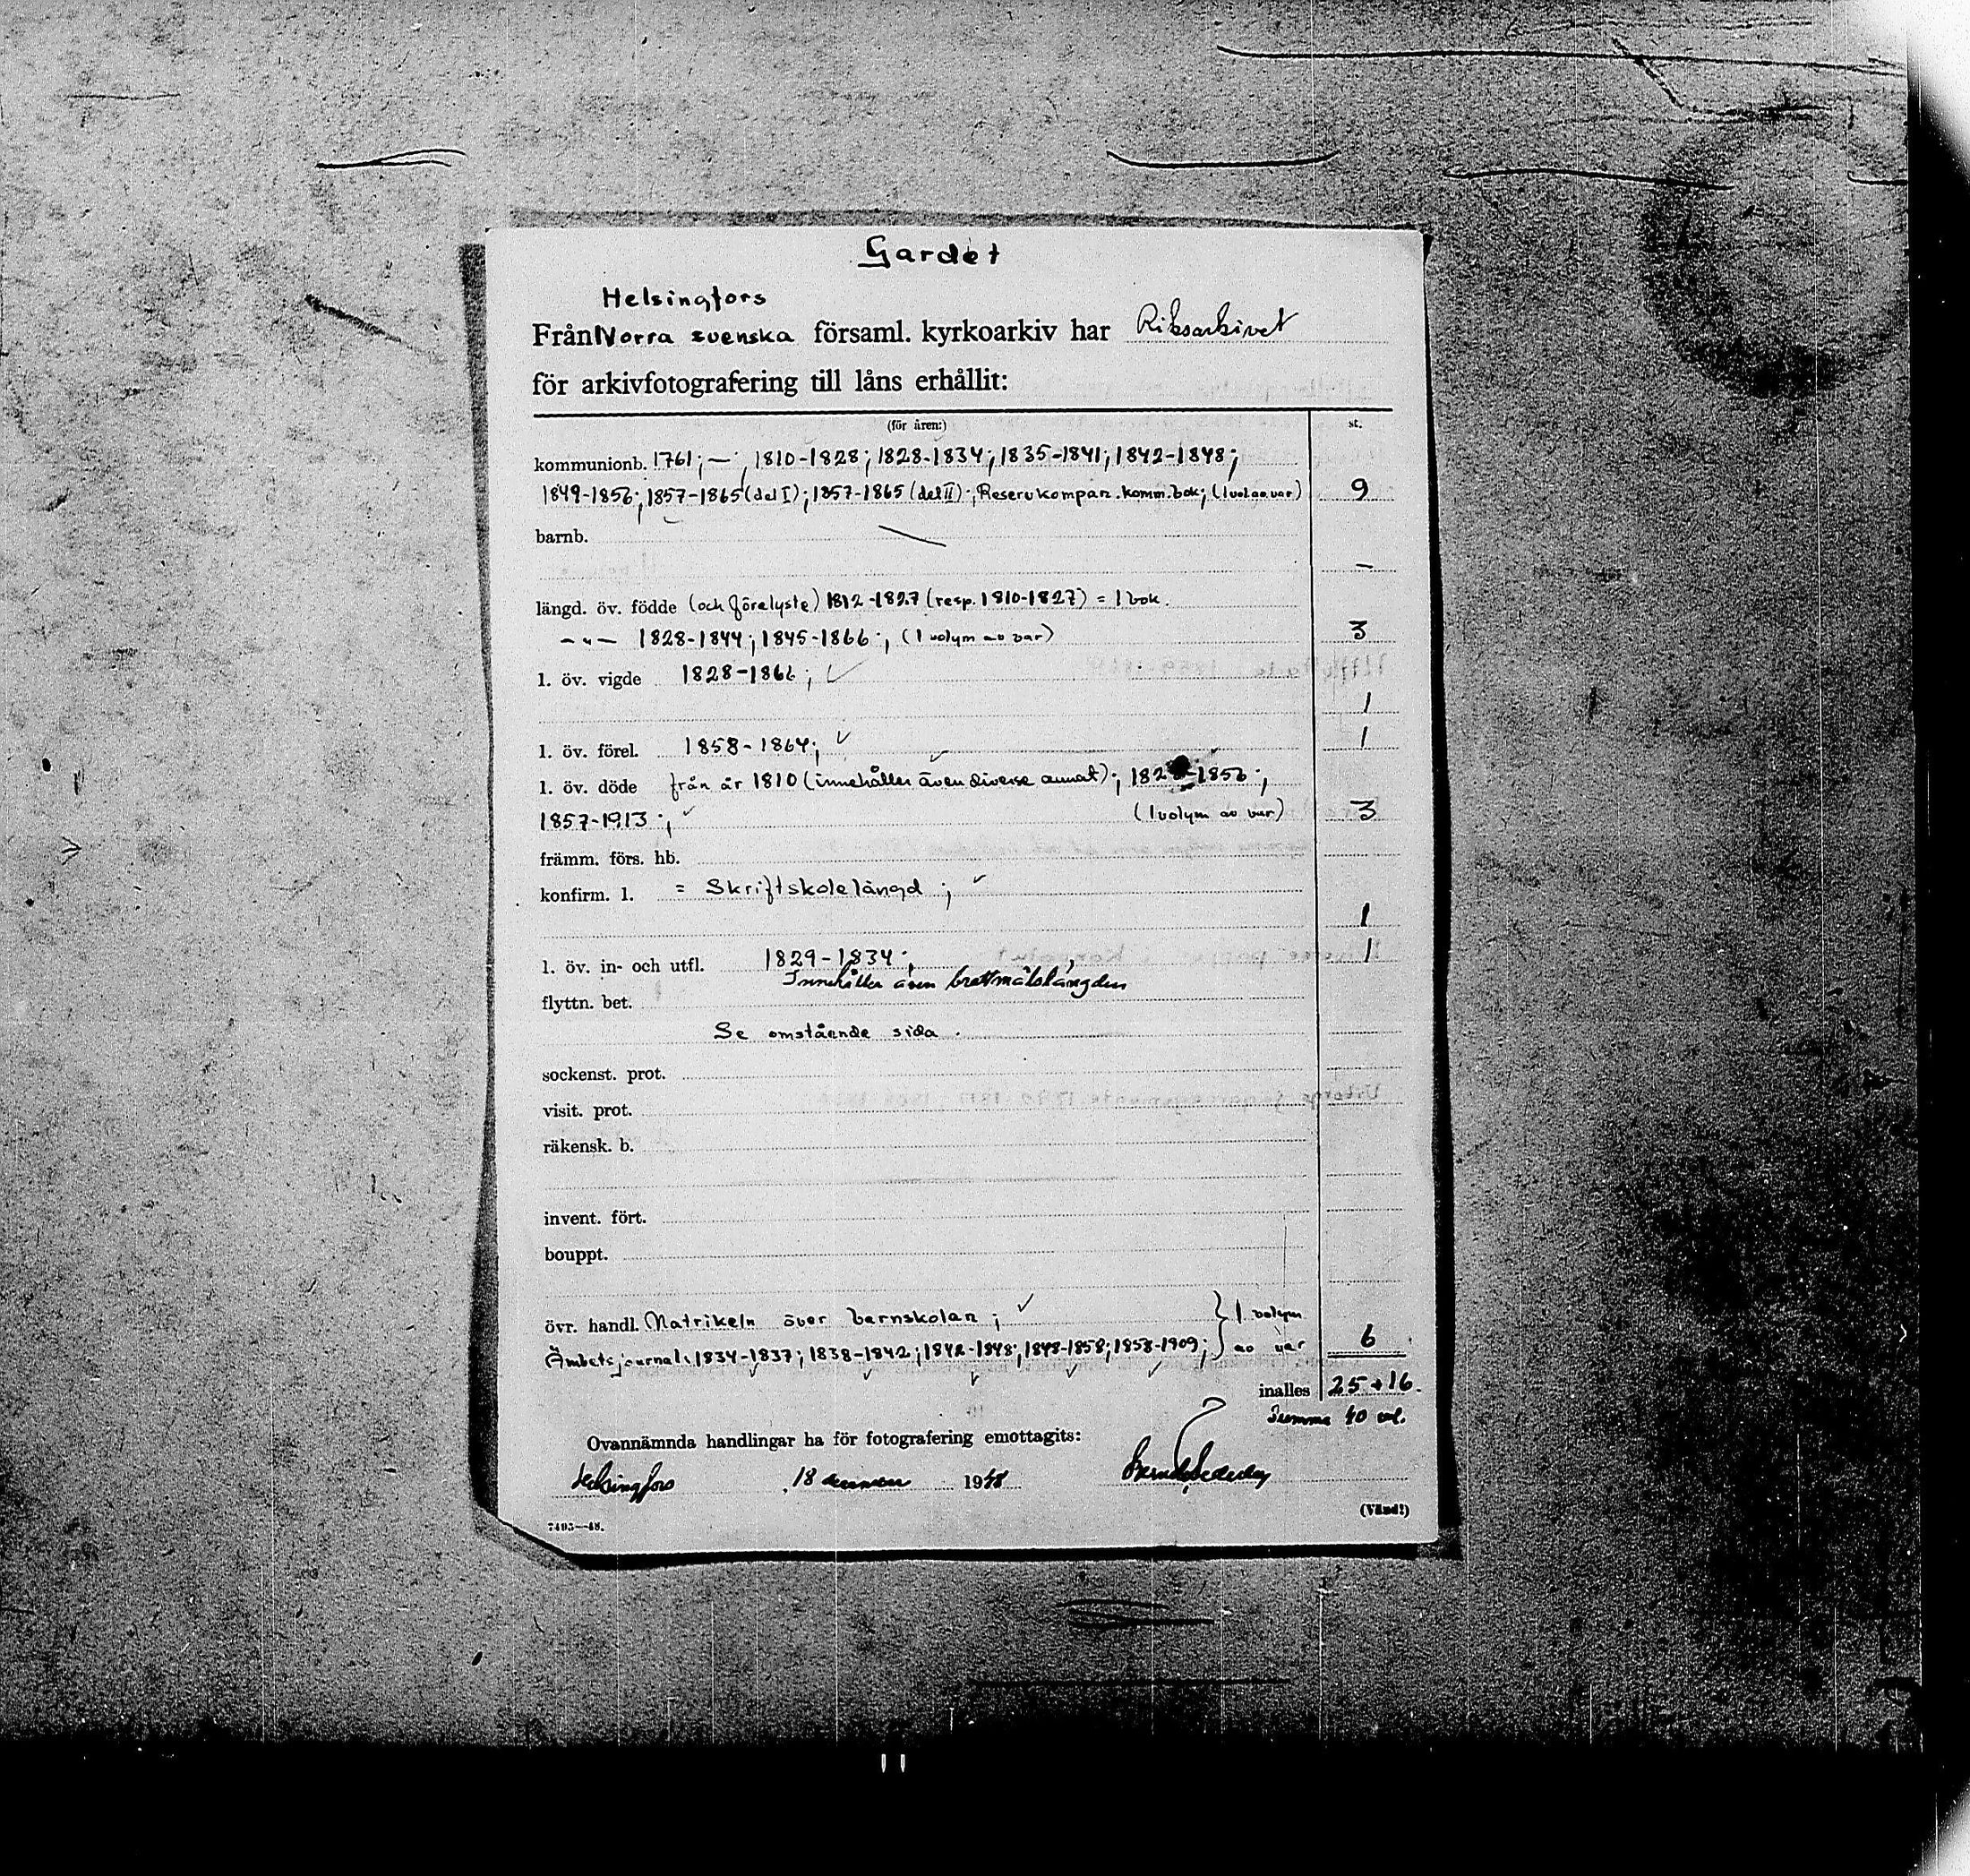 Gardet
Helsingfors
Från Norra svenska församl. kyrkoarkiv har Riksarkivet
för arkivfotografering till låns erhållit:
(för åren:) st.
kommunionb. 1761; —; 1810-1828; 1828-1834; 1835-1841; 1842-1848;
1849-1856; 1857-1865 (del I); 1857-1865 (del II); Reservkompan. komm. bok; (1 vol av var) 9
barnb. —
–
längd. öv. födde (och förelyste) 1812-1827 (resp. 1810-1827) = 1 bok.
– " – 1828-1844; 1845-1866; (1 volym av var) 3
l. öv. vigde 1828-1866; ✓
1
l. öv. förel. 1858-1864; ✓ 1
l. öv. döde från år 1810 (innehåller även diverse annat); 182 -1856;
1857-1913; ✓ (1 volym av var) 3
främm. förs. hb.
konfirm. l. = Skriftskolelängd; ✓
1
l. öv. in- och utfl. 1829-1834; 1
Innehåller även brottmålslängden
flyttn. bet.
Se omstående sida.
sockenst. prot.
visit. prot.
räkensk. b.
invent. fört.
bouppt.
övr. handl. Matrikeln över barnskolan; ✓ } 1 volym
Ämbetsjournal: 1834-1837; 1838-1842; 1842-1848; 1848-1858; 1858-1909; } av var 6
inalles 25+16.
Summa 40 vol.
Ovannämnda handlingar ha för fotografering emottagits:
Helsingfors, 18 1948
(Vänd!)
7493—48.